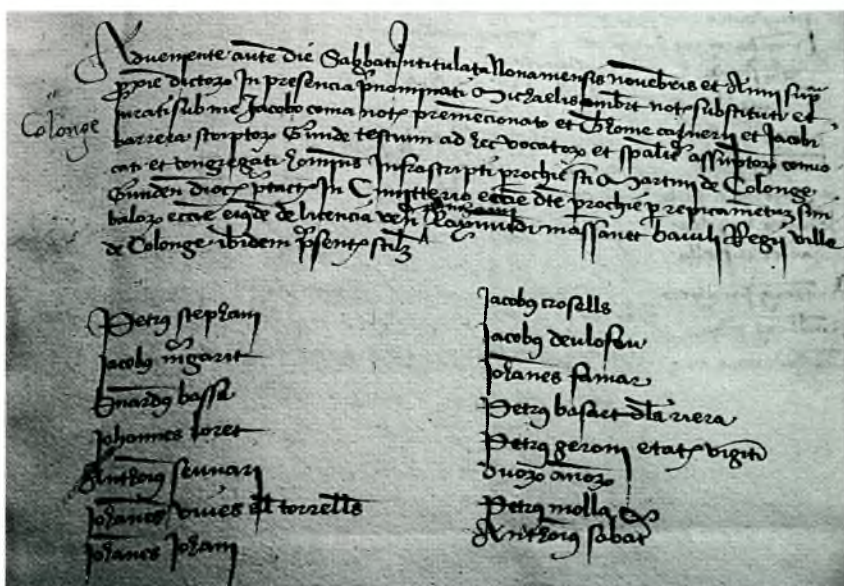 Adveniente autē die Sabbati intitulata Nona mensis novēbris et Anni sup̄
p̄xie dictoꝝ In presencia p̄nominati Michaelis ombert not substituti et
Colonge
jurati sub me Jacobo coma not premēcionato et Thome calnerii et Jacobi
barrera scriptoꝝ Gūnde testium ad hec vocatoꝝ et sp̄alit̄ assūptoꝝ convo
cati et congregati homines Infrascripti prochie sc̄i Martini de Colonge
Gūnden dioc̄ p̄tact In Cimitterio ecc̄ie dc̄e prochie p repicametū sim
baloꝝ ecc̄ie eiq̄de de licencia ven̄ Raymūdi massanet baiuli Regii ville
de Colonge ibidem p̄sent scilꝫ
Petrꝰ stephani
Jacobꝰ m̄garit
Bn̄ardꝰ bassa
Johannes loret
Anthoniꝰ sennari
Johānes vives al̄ torrells
Johānes Johani
Jacobꝰ crosells
Jacobꝰ deulofeu
Johānes famar
Petrꝰ basart dla riera
Petrꝰ geroni etat viginti
duoꝝ anoꝝ
Petrꝰ molla
Anthoniꝰ sabat